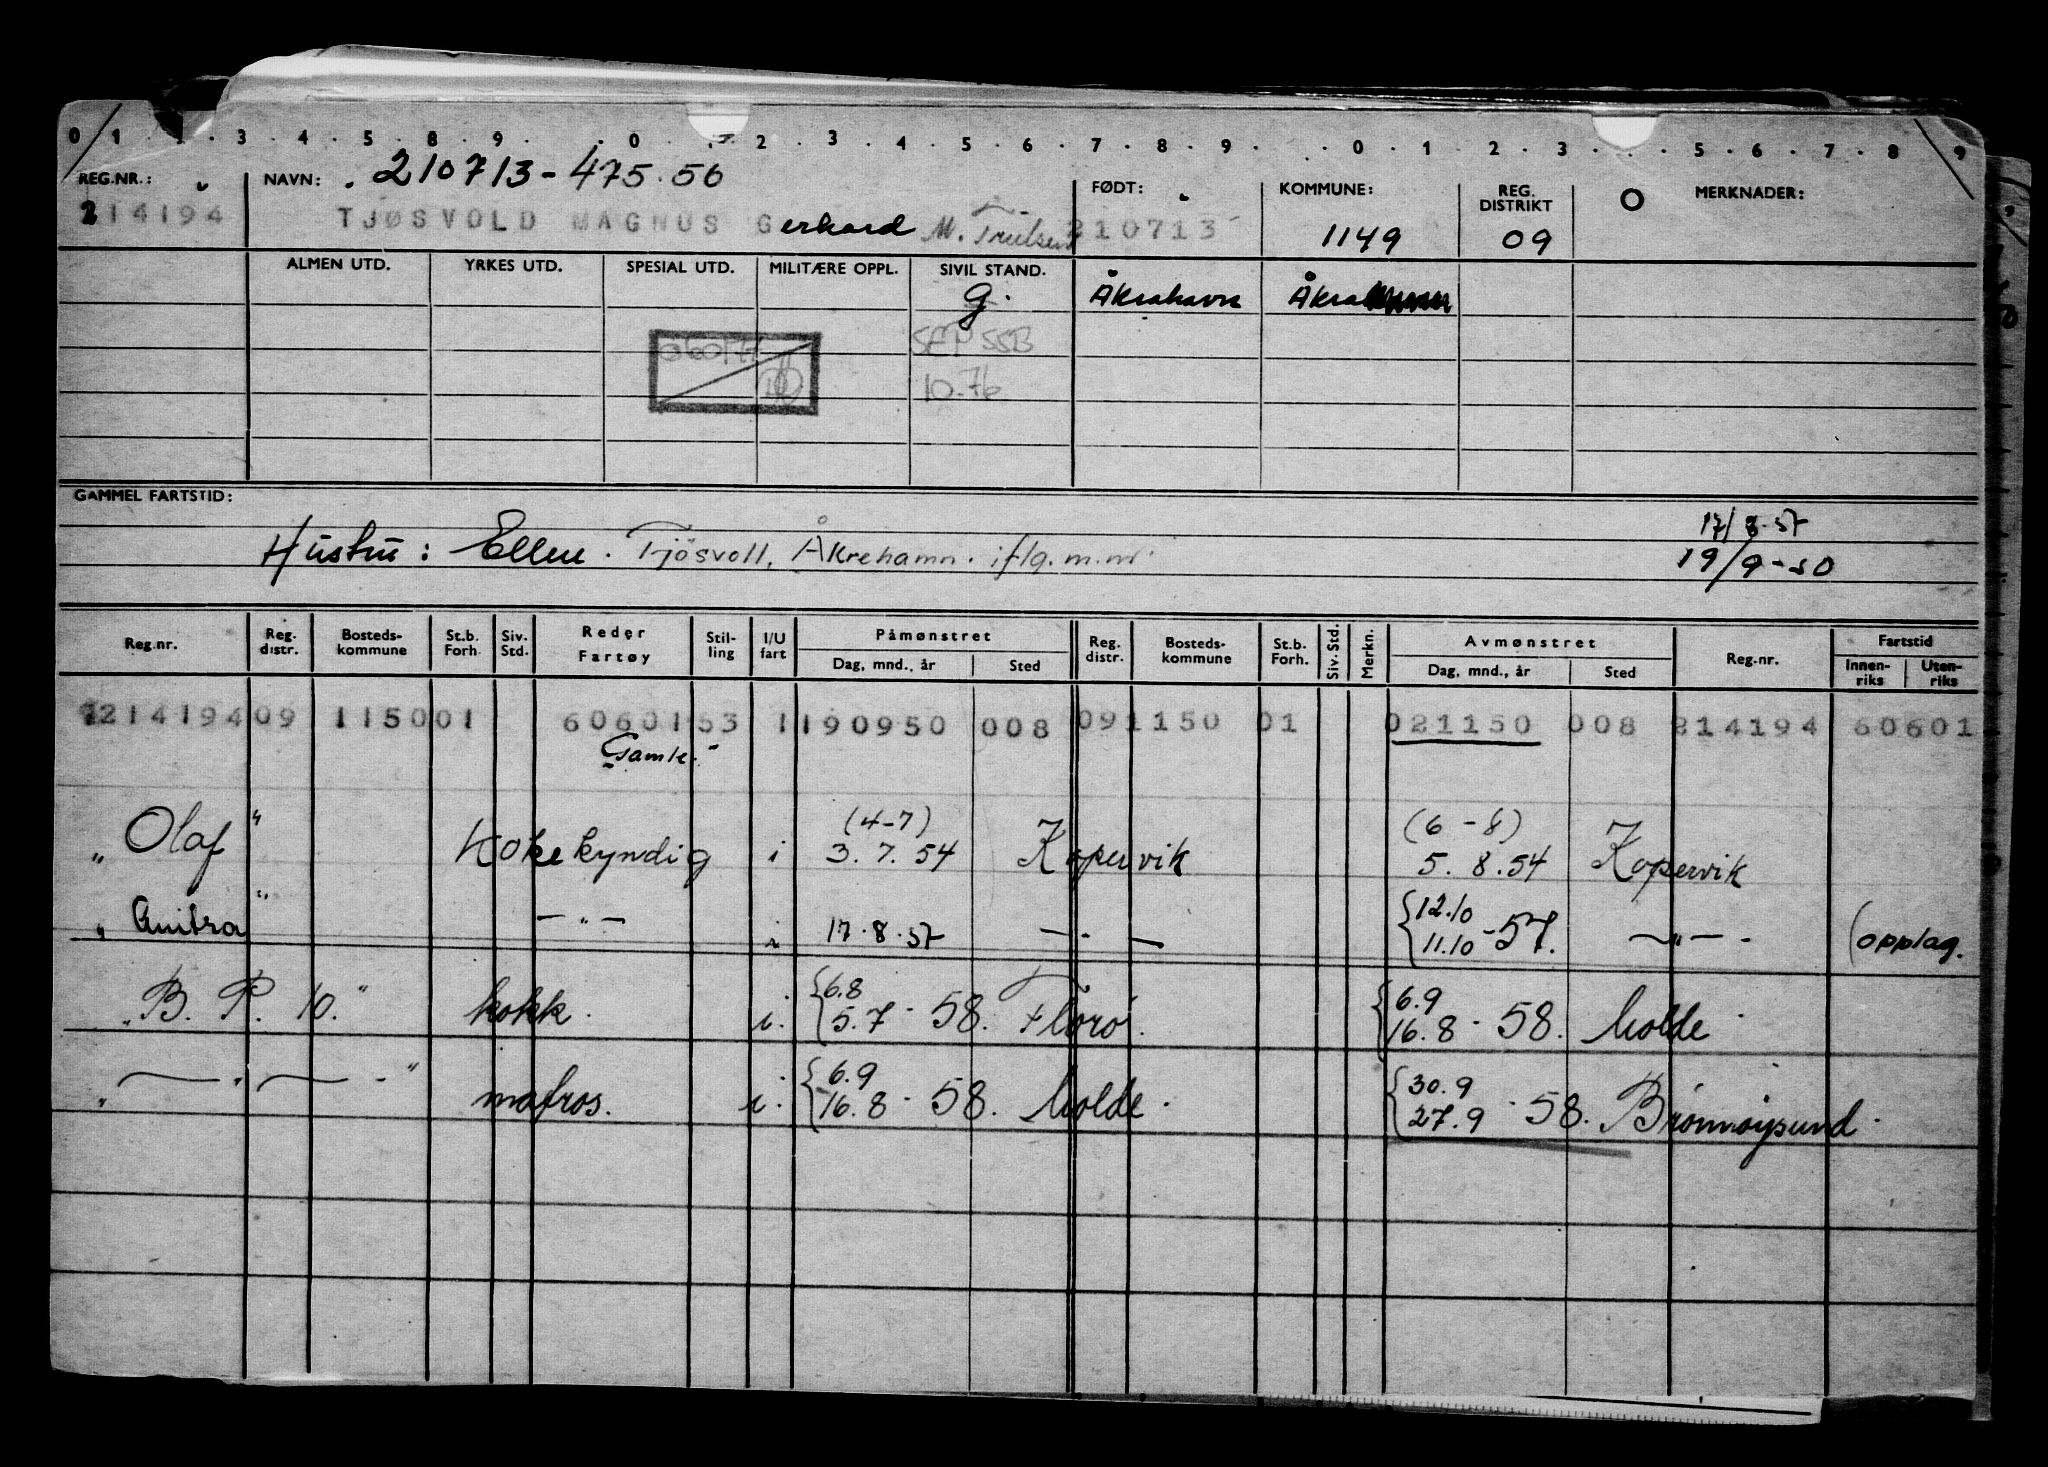 0 1 . 3 . 4 . 5 . 8 . 9 . . 0 . . 2 . 3 . 4 . 5 . 6 . 7 . 8 . 9 . . 0 . 1 . 2 . 3 . . . 5 . 6 . 7 . 8 . 9
REG.NR.: NAVN: 210713-475.56 FØDT: KOMMUNE: REG. DISTRIKT MERKNADER:
214194 TJØSVOLD MAGNUS Gerhard M. Trulsen 210713 1149 09
ALMEN UTD. YRKES UTD. SPESIAL UTD. MILITÆRE OPPL. SIVIL STAND.
g. Åkrahavn Åkra
SEP SSB
10.76
GAMMEL FARTSTID:
17/8-57
Hustru: Ellen. Tjösvoll, Åkrehamn. iflg. m.m.
19/9-50
Reg.nr. Reg. distr. Bosteds- kommune St.b. Forh. Siv. Std. Reder Fartøy Stil- ling I/U fart Påmønstret Reg. distr. Bosteds- kommune St.b. Forh. Siv. Std. Merkn. Avmønstret Reg.nr. Fartstid
Dag, mnd., år Sted Dag, mnd., år Sted Innen- riks Uten- riks
214194 09 1150 01 60601 53 1 190950 008 09 1150 01 021150 008 214194 60601
Gamle
(4-7) (6-8)
"Olaf" Kokekyndig i 3.7.54 Kopervik 5.8.54 Kopervik
12.10
"Anitra" — " — i 17.8.57 — " — 11.10 -57. — " — (opplag.
6.8 6.9
"B. P. 10." kokk. i. 5.7 - 58. Florø. 16.8 - 58. Molde
6.9 30.9
" — " — " matros. i. 16.8 - 58. Molde. 27.9 - 58. Brønnøysund.